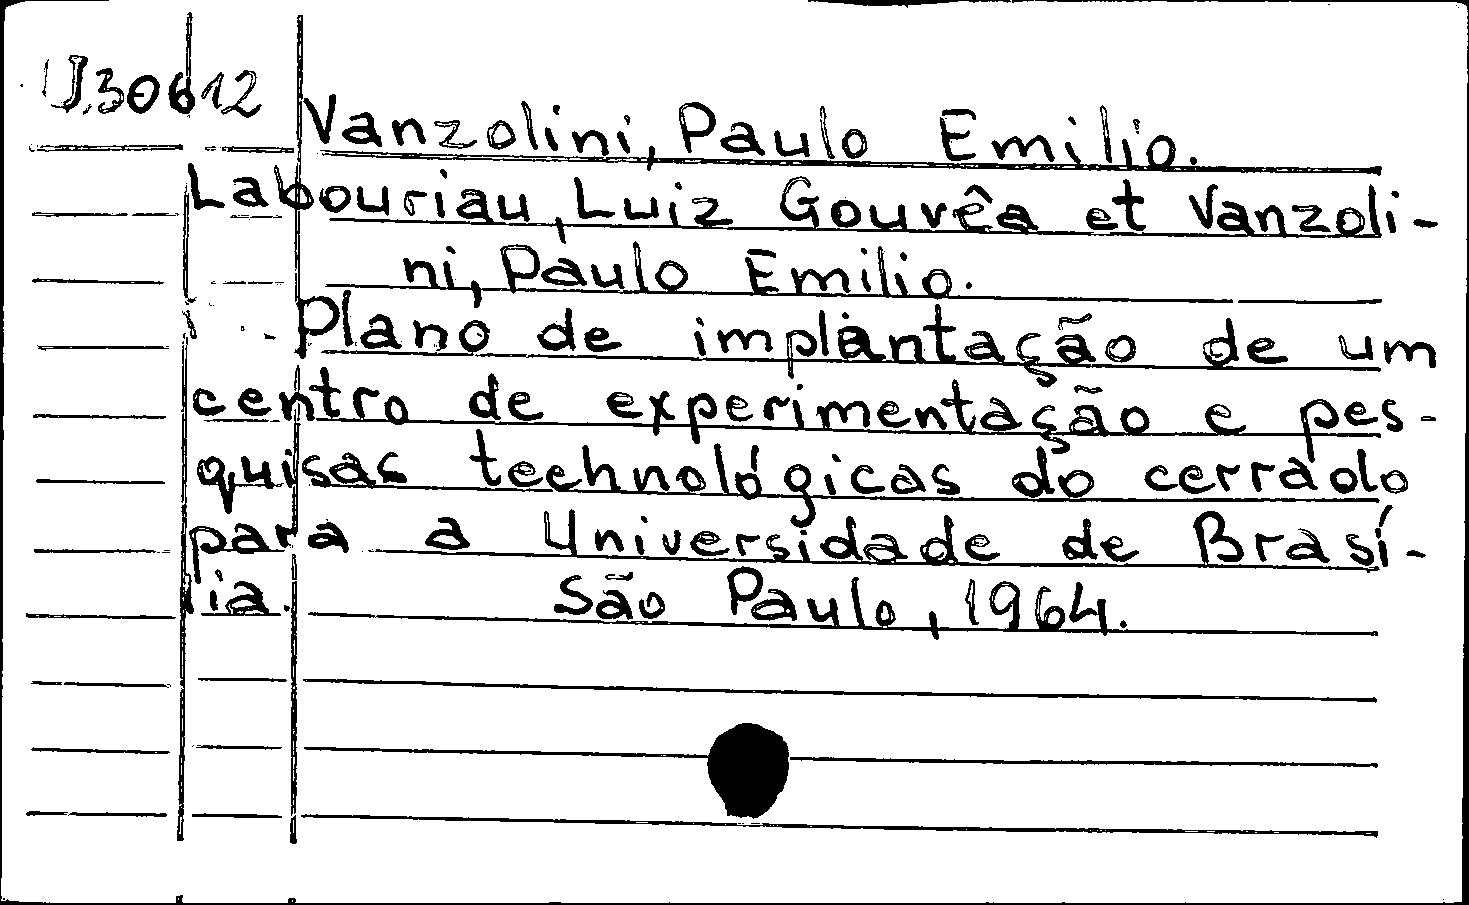 J.30612
Vanzolini, Paulo Emilio.
Labouriau, Luiz Gouvêa et Vanzoli-
ni, Paulo Emilio.
Plano de implantação de um
centro de experimentação e pes-
quisas technológicas do cerrado
para a Universidade de Brasí-
lia. São Paulo, 1964.